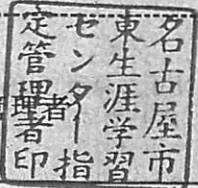 名古屋市
東生涯学習
センター指
定管理者印